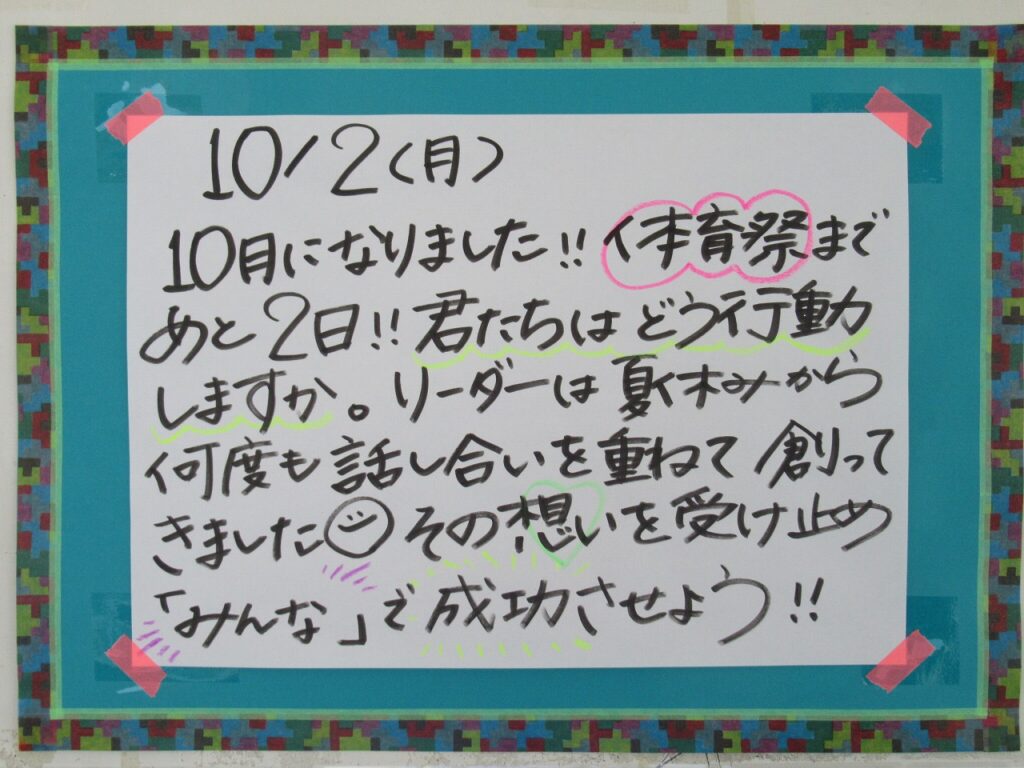 10/2(月)
10月になりました!! 体育祭まで
あと2日!! 君たちはどう行動
しますか。リーダーは夏休みから
何度も話し合いを重ねて創って
きました その想いを受け止め
「みんな」で成功させよう!!